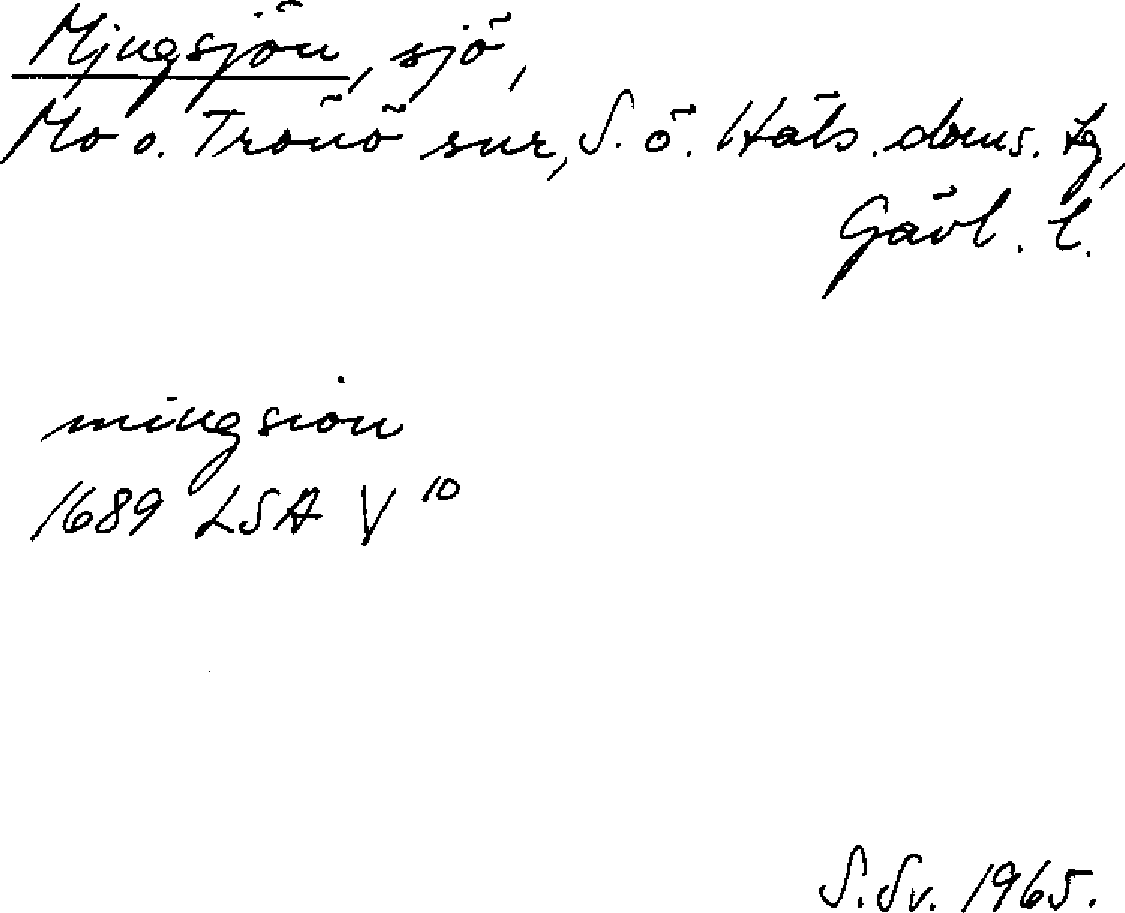 Mjugsjön, sjö,
Mo o. Trönö snr, S. ö. Häls. doms. tg,
Gävl. l.
miugsion
1689 LSA V 10
S. Sv. 1965.